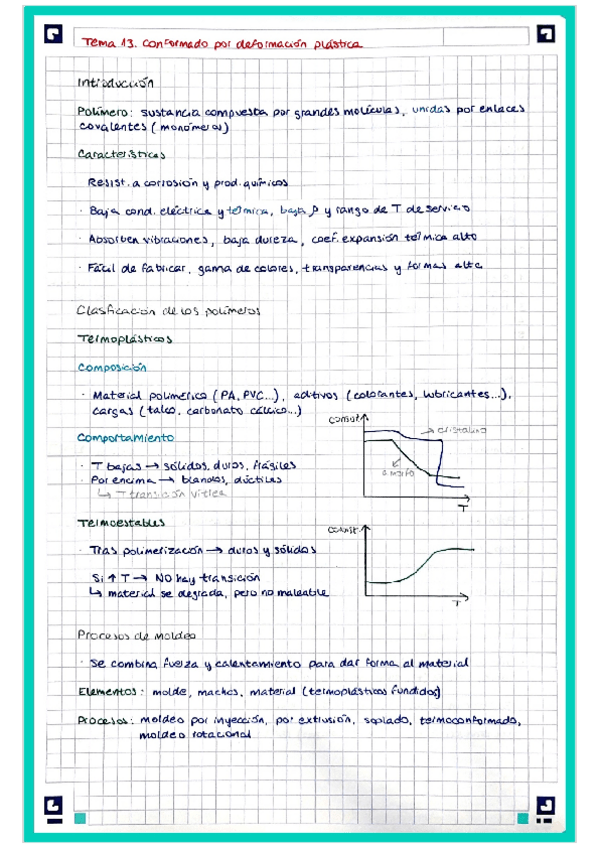 Tema 13. Conformado por deformación plástica
Introducción
Polímero: sustancia compuesta por grandes moléculas, unidas por enlaces
covalentes (monómeros)
Características
Resist. a corrosión y prod. químicos
· Baja cond. eléctrica y térmica, baja ρ y rango de T de servicio
· Absorben vibraciones, baja dureza, coef. expansión térmica alto
· Fácil de fabricar, gama de colores, transparencias y formas alta
Clasificación de los polímeros
Termoplásticos
Composición
· Material polimérico (PA, PVC...), aditivos (colorantes, lubricantes...),
cargas (talco, carbonato cálcico...)
Comportamiento
· T bajas → sólidos, duros, frágiles
· Por encima → blandos, dúctiles
↳ T transición vítrea
cristalino
amorfo
T
Termoestables
· Tras polimerización → duros y sólidos
Si ↑ T → NO hay transición
↳ material se degrada, pero no maleable
T
Procesos de moldeo
· Se combina fuerza y calentamiento para dar forma al material
Elementos: molde, machos, material (termoplásticos fundidos)
Procesos: moldeo por inyección, por extrusión, soplado, termoconformado,
moldeo rotacional